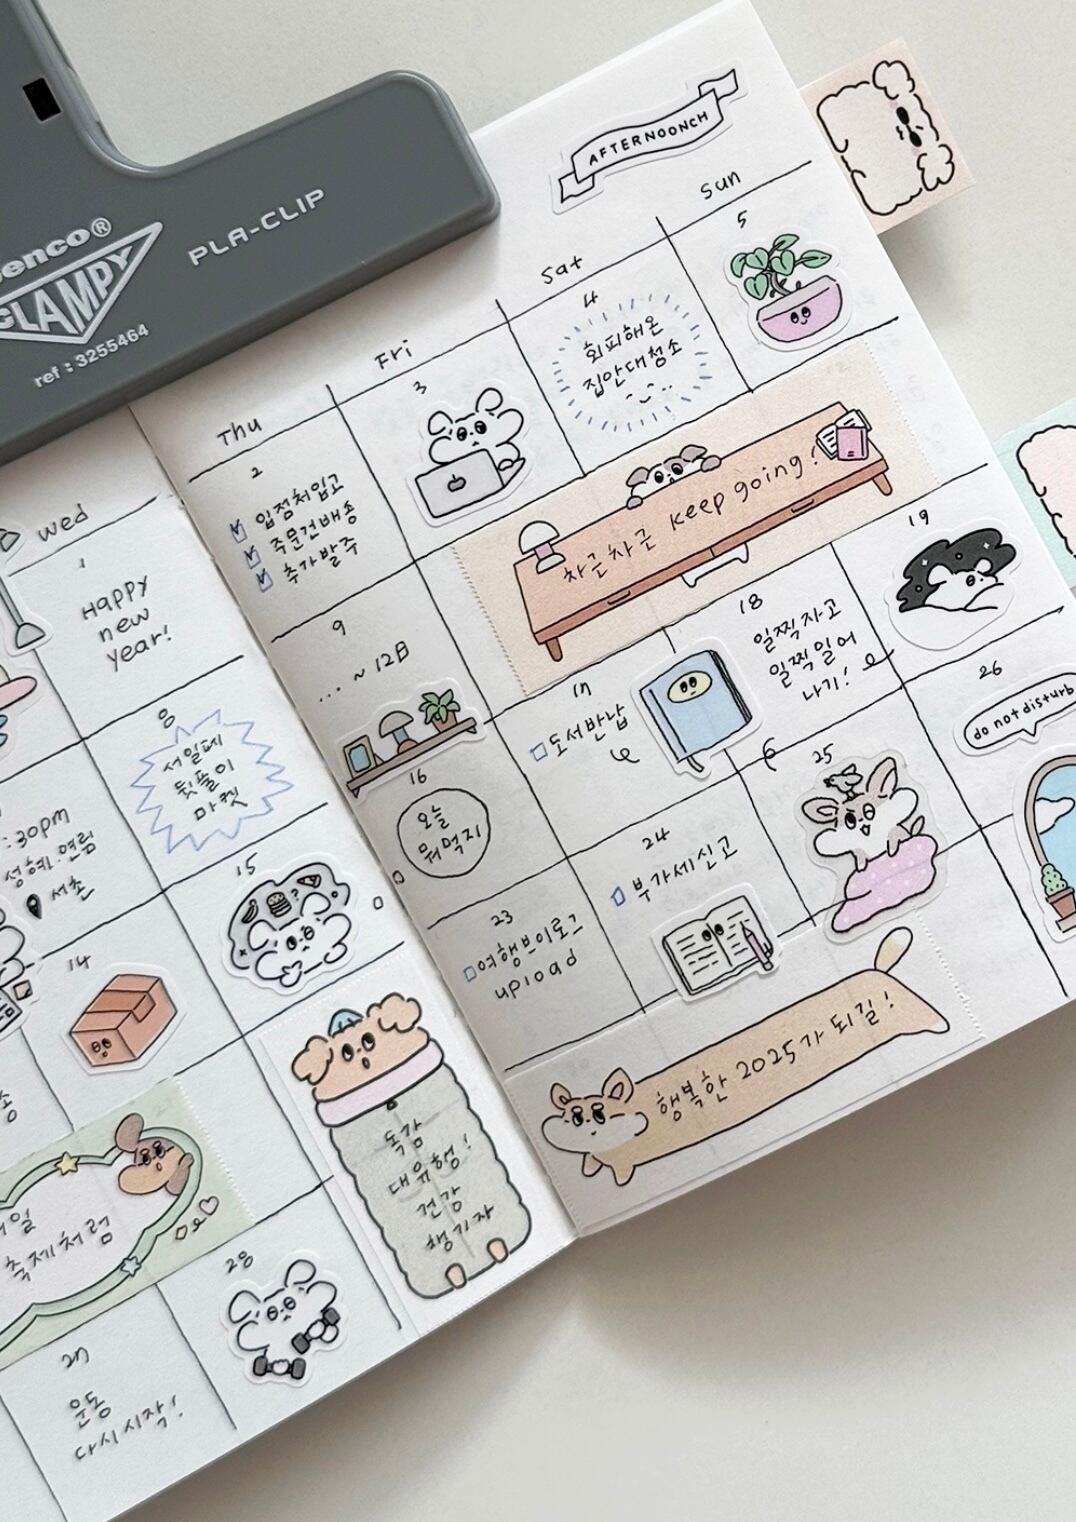 PLA-CLIP
CLAMPY
ref : 3255464
AFTERNOONCH
Wed
1
Happy
new
year!
8
서일페
뒷풀이
마켓
:30pm
성혜.연럼
서촌
14
15
축제처럼
27
운동
다시시작!
28
독감
대유행!
건강
챙기자
Thu
Fri
Sat
Sun
2
입점처입고
주문건배송
추가발주
3
4
회피해온
집안대청소
5
차근차근 keep going!
9
... ~ 12日
16
오늘
뭐먹지
17
도서반납
18
일찍자고
일찍일어
나기!
19
23
여행브이로그
upload
24
부가세신고
25
26
do not disturb
행복한 2025가 되길!